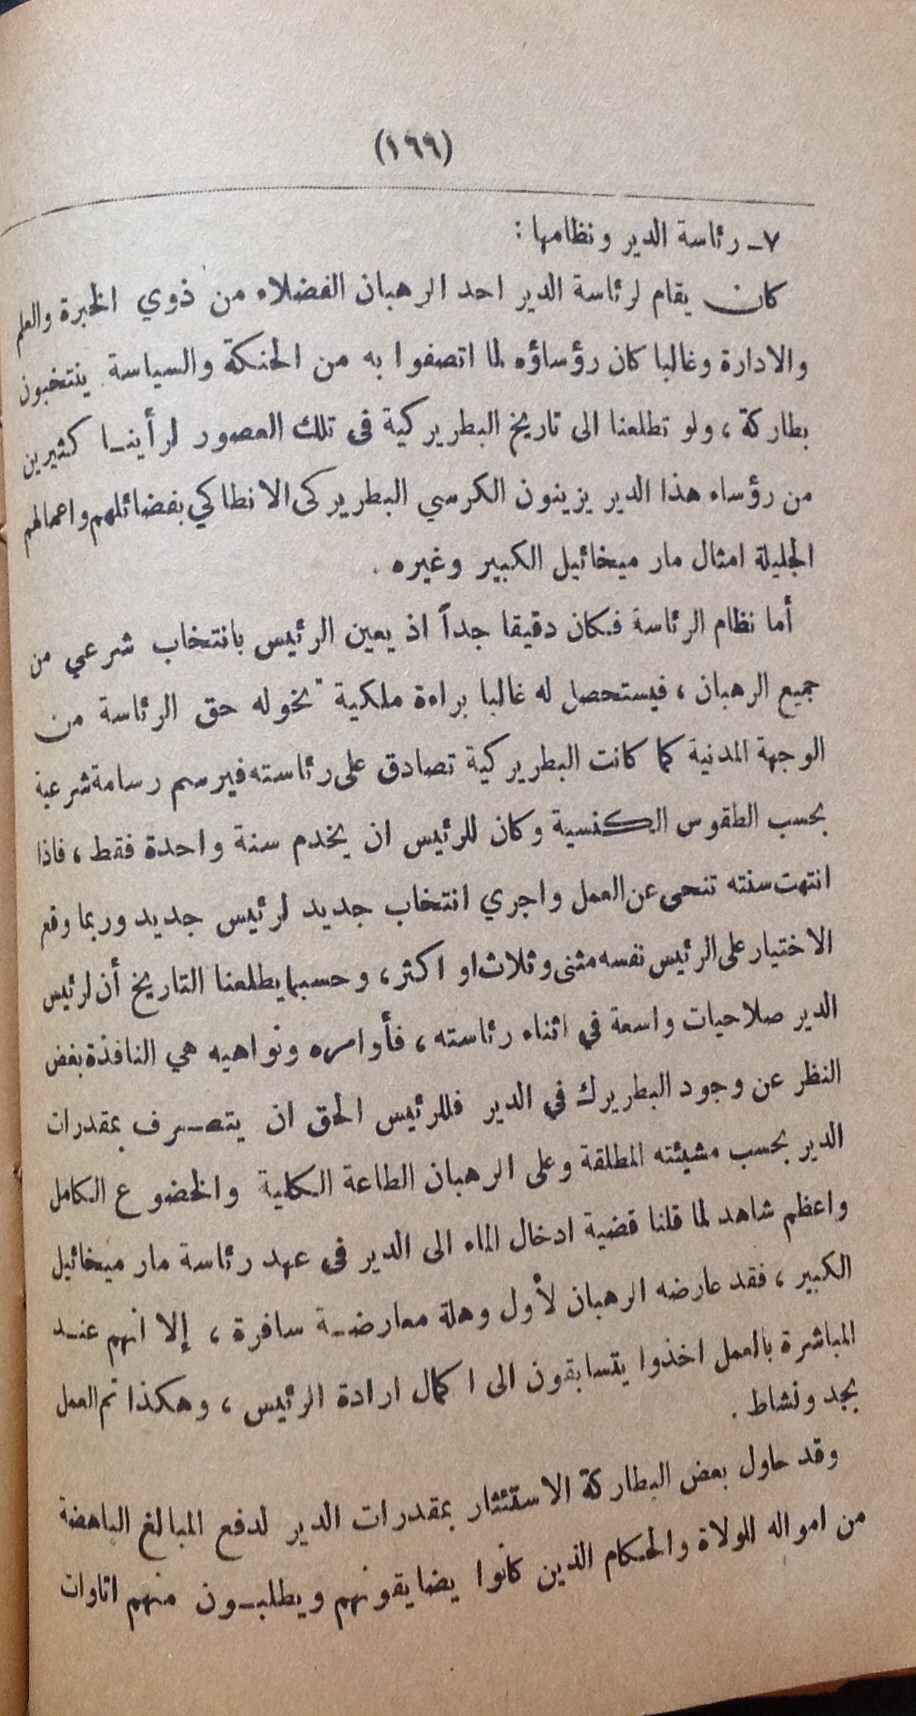 (١٦٦)
٧ـ رئاسة الدير ونظامها :
كان يقام لرئاسة الدير احد الرهبان الفضلاء من ذوي الخبرة والعلم
والادارة وغالبا كان رؤساؤه لما اتصفوا به من الحنكة والسياسة ينتخبون
بطاركة ، ولو تطلعنا الى تاريخ البطريركية في تلك العصور لرأينـا كثيرين
من رؤساء هذا الدير يزينون الكرسي البطريركى الانطاكي بفضائلهم واعمالهم
الجليلة امثال مار ميخائيل الكبير وغيره .
أما نظام الرئاسة فكان دقيقا جداً اذ يعين الرئيس بانتخاب شرعي من
جميع الرهبان ، فيستحصل له غالبا براءة ملكية تخوله حق الرئاسة من
الوجهة المدنية كما كانت البطريركية تصادق على رئاسته فيرسم رسامة شرعية
بحسب الطقوس الكنسية وكان للرئيس ان يخدم سنة واحدة فقط ، فاذا
انتهت سنته تنحى عن العمل واجري انتخاب جديد لرئيس جديد وربما وقع
الاختيار على الرئيس نفسه مثنى وثلاث او اكثر ، وحسبما يطلعنا التاريخ أن لرئيس
الدير صلاحيات واسعة في اثناء رئاسته ، فأوامره ونواهيه هي النافذة بغض
النظر عن وجود البطريرك في الدير فللرئيس الحق ان يتصـرف بمقدرات
الدير بحسب مشيئته المطلقة وعلى الرهبان الطاعة الكلية والخضوع الكامل
واعظم شاهد لما قلنا قضية ادخال الماء الى الدير في عهد رئاسة مار ميخائيل
الكبير ، فقد عارضه الرهبان لأول وهلة معارضـة سافرة ، إلا انهم عنـد
المباشرة بالعمل اخذوا يتسابقون الى اكمال ارادة الرئيس ، وهكذا تم العمل
بجد ونشاط .
وقد حاول بعض البطاركة الاستئثار بمقدرات الدير لدفع المبالغ الباهضة
من امواله للولاة والحكام الذين كانوا يضايقونهم ويطلبـون منهم اتاوات